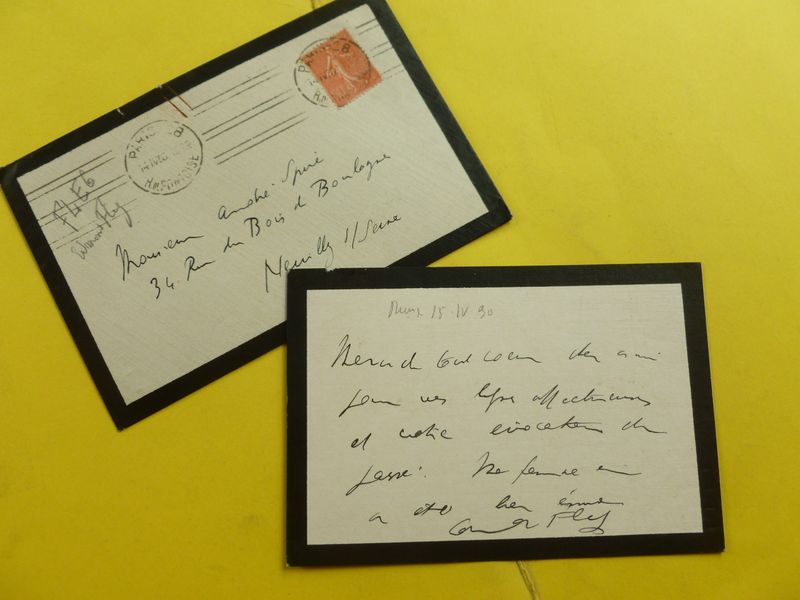 PARIS
PARIS
R. HIPPOLYTE
FLEG
Edmond Fleg
Monsieur André Spire
34 Rue du Bois de Boulogne
Neuilly s/Seine
15-IV 30
Merci de tout coeur cher ami
pour vos lignes affectueuses
et votre évocation du
passé. Ma femme en
a été bien émue
Fleg